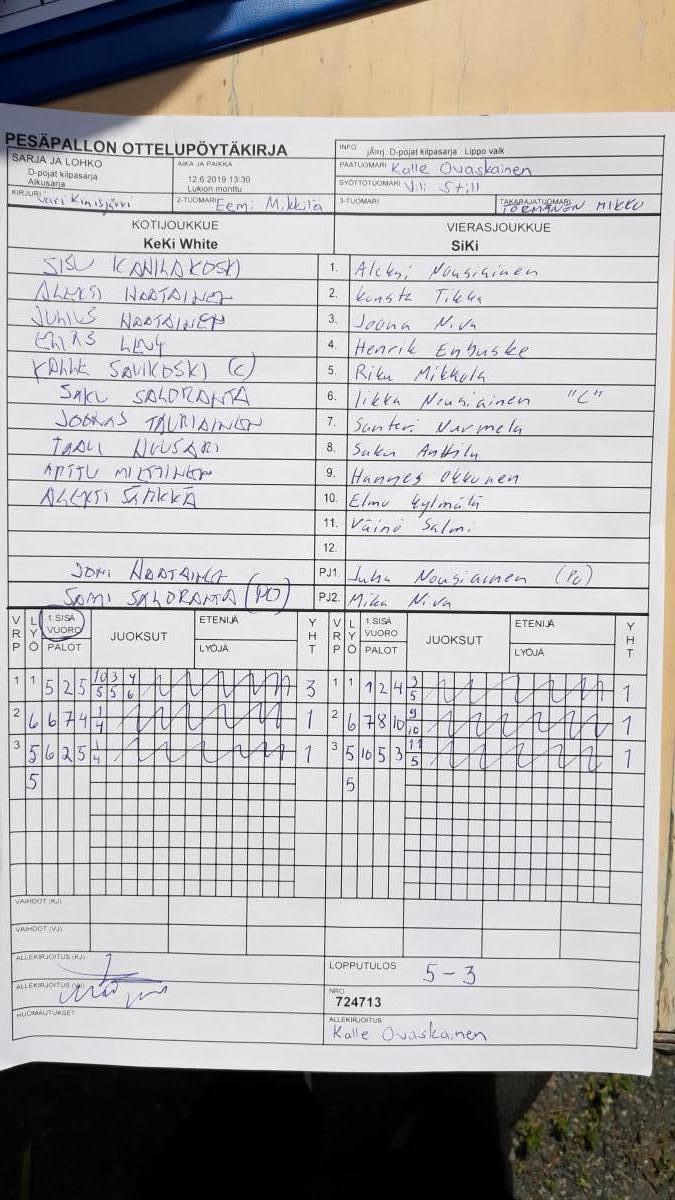 PESÄPALLON OTTELUPÖYTÄKIRJA
INFO jÄrrj. D-pojat kilpasarja : Lippo vaik
SARJA JA LOHKO D-pojat kilpasarja Alkusarja
AIKA JA PAIKKA 12.6.2019 13:30 Lukion monttu
PÄÄTUOMARI Kalle Ovaskainen
SYÖTTÖTUOMARI Vili Still
KIRJURI
2-TUOMARI Eemi Mikkilä
3-TUOMARI
TAKARAJATUOMARI TÖRMÄNEN MIKKO
KOTIJOUKKUE VIERASJOUKKUE
KeKi White SiKi
SISU KANILAKOSKI 1. Aleksi Nousiainen
ALEKSI HAATAINEN 2. Konsta Tikka
JULIUS HAATAINEN 3. Joona Niva
4. Henrik Enbuske
KALLE SAVIKOSKI (C) 5. Riku Mikkola
SAKU SALORANTA 6. Iikka Nousiainen "C"
JOONAS TAURIAINEN 7. Santeri Nurmela
TAAVI 8. Saku Anttila
ARTTU MIETTINEN 9. Hannes Okkonen
ALEKSI SÄRKKÄ 10. Elmo Kylmälä
11. Väinö Salmi
12.
JONI HAATAINEN PJ1. Juha Nousiainen (PO)
SAMI SALORANTA (PO) PJ2. Mika Niva
VRP LYÖ 1.SISÄ VUORO PALOT JUOKSUT ETENIJÄ LYÖJÄ YHT VRP LYÖ 1.SISÄ VUORO PALOT JUOKSUT ETENIJÄ LYÖJÄ YHT
1 1 5 2 5 10/5 3/5 4/6 3 1 1 1 2 4 3/5 1
2 6 6 7 4 1/4 1 2 6 7 8 10 9/10 1
3 5 6 2 5 1/4 1 3 5 10 5 3 11/5 1
5 5
VAIHDOT (KJ)
VAIHDOT (VJ)
ALLEKIRJOITUS (KJ)
LOPPUTULOS 5-3
ALLEKIRJOITUS (VJ)
NRO 724713
HUOMAUTUKSET
ALLEKIRJOITUS Kalle Ovaskainen